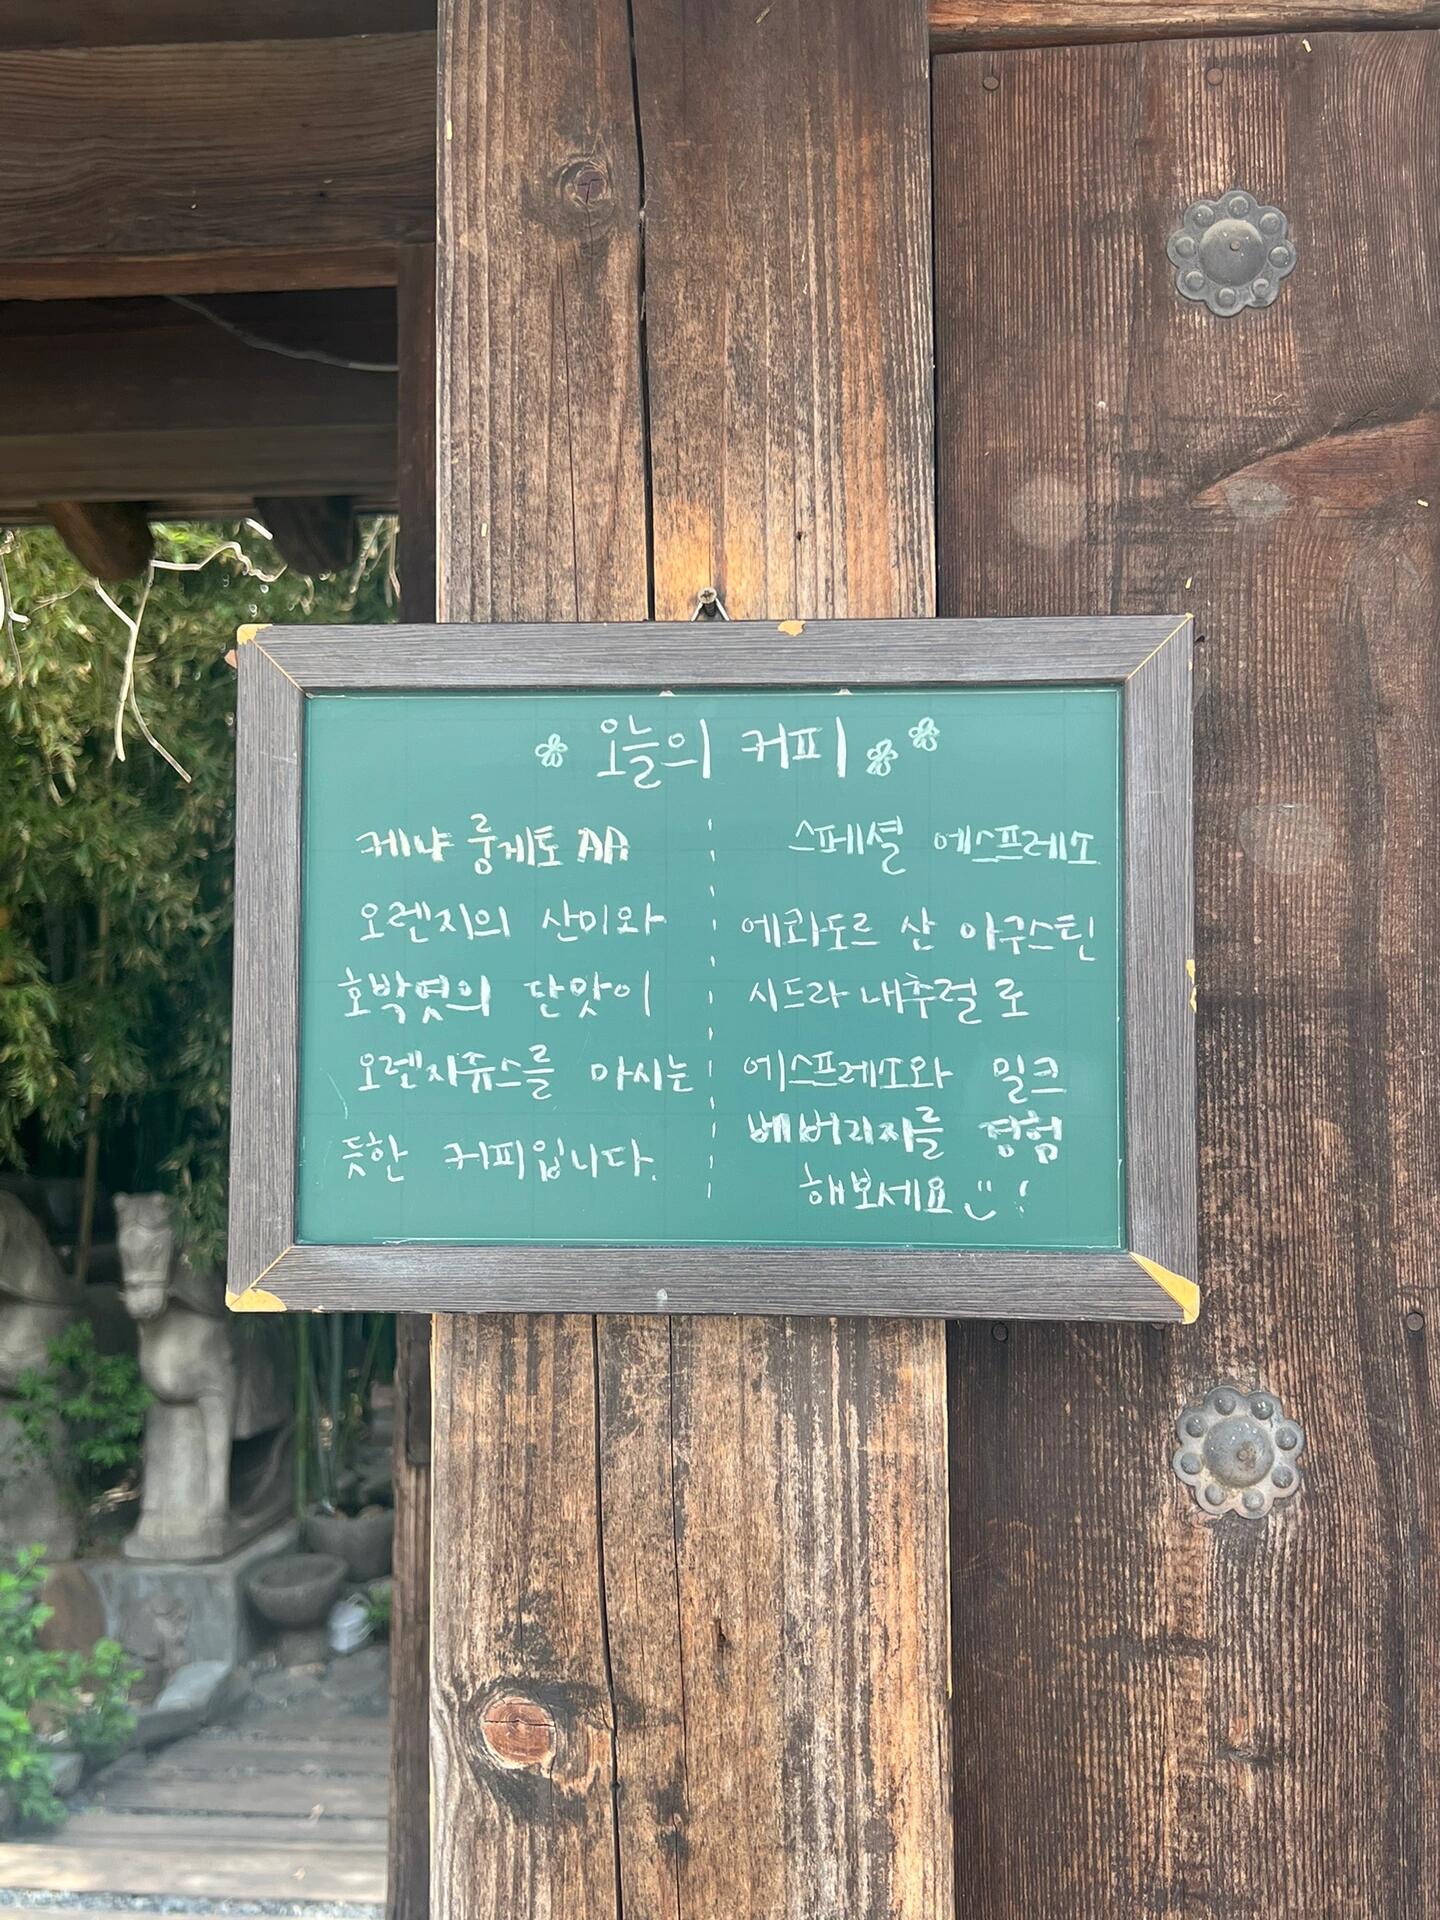 오늘의 커피
케냐 룽게토 AA
오렌지의 산미와
호박엿의 단맛이
오렌지쥬스를 마시는
듯한 커피입니다.
스페셜 에스프레소
에콰도르 산 아구스틴
시드라 내추럴 로
에스프레소와 밀크
베버리지를 경험
해보세요 !